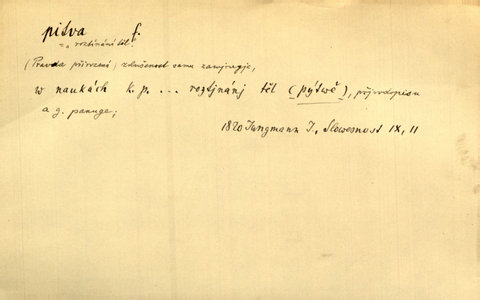 pitva f.
= roztínání těl.
(Pravda přirozená) zkušenost samu zawjragjc,
w naukách k. p. ... roztjnánj těl (pýtwě), přjrodopisu
a g. panuge;
1820 Jungmann J., Slowesnost IX, 11